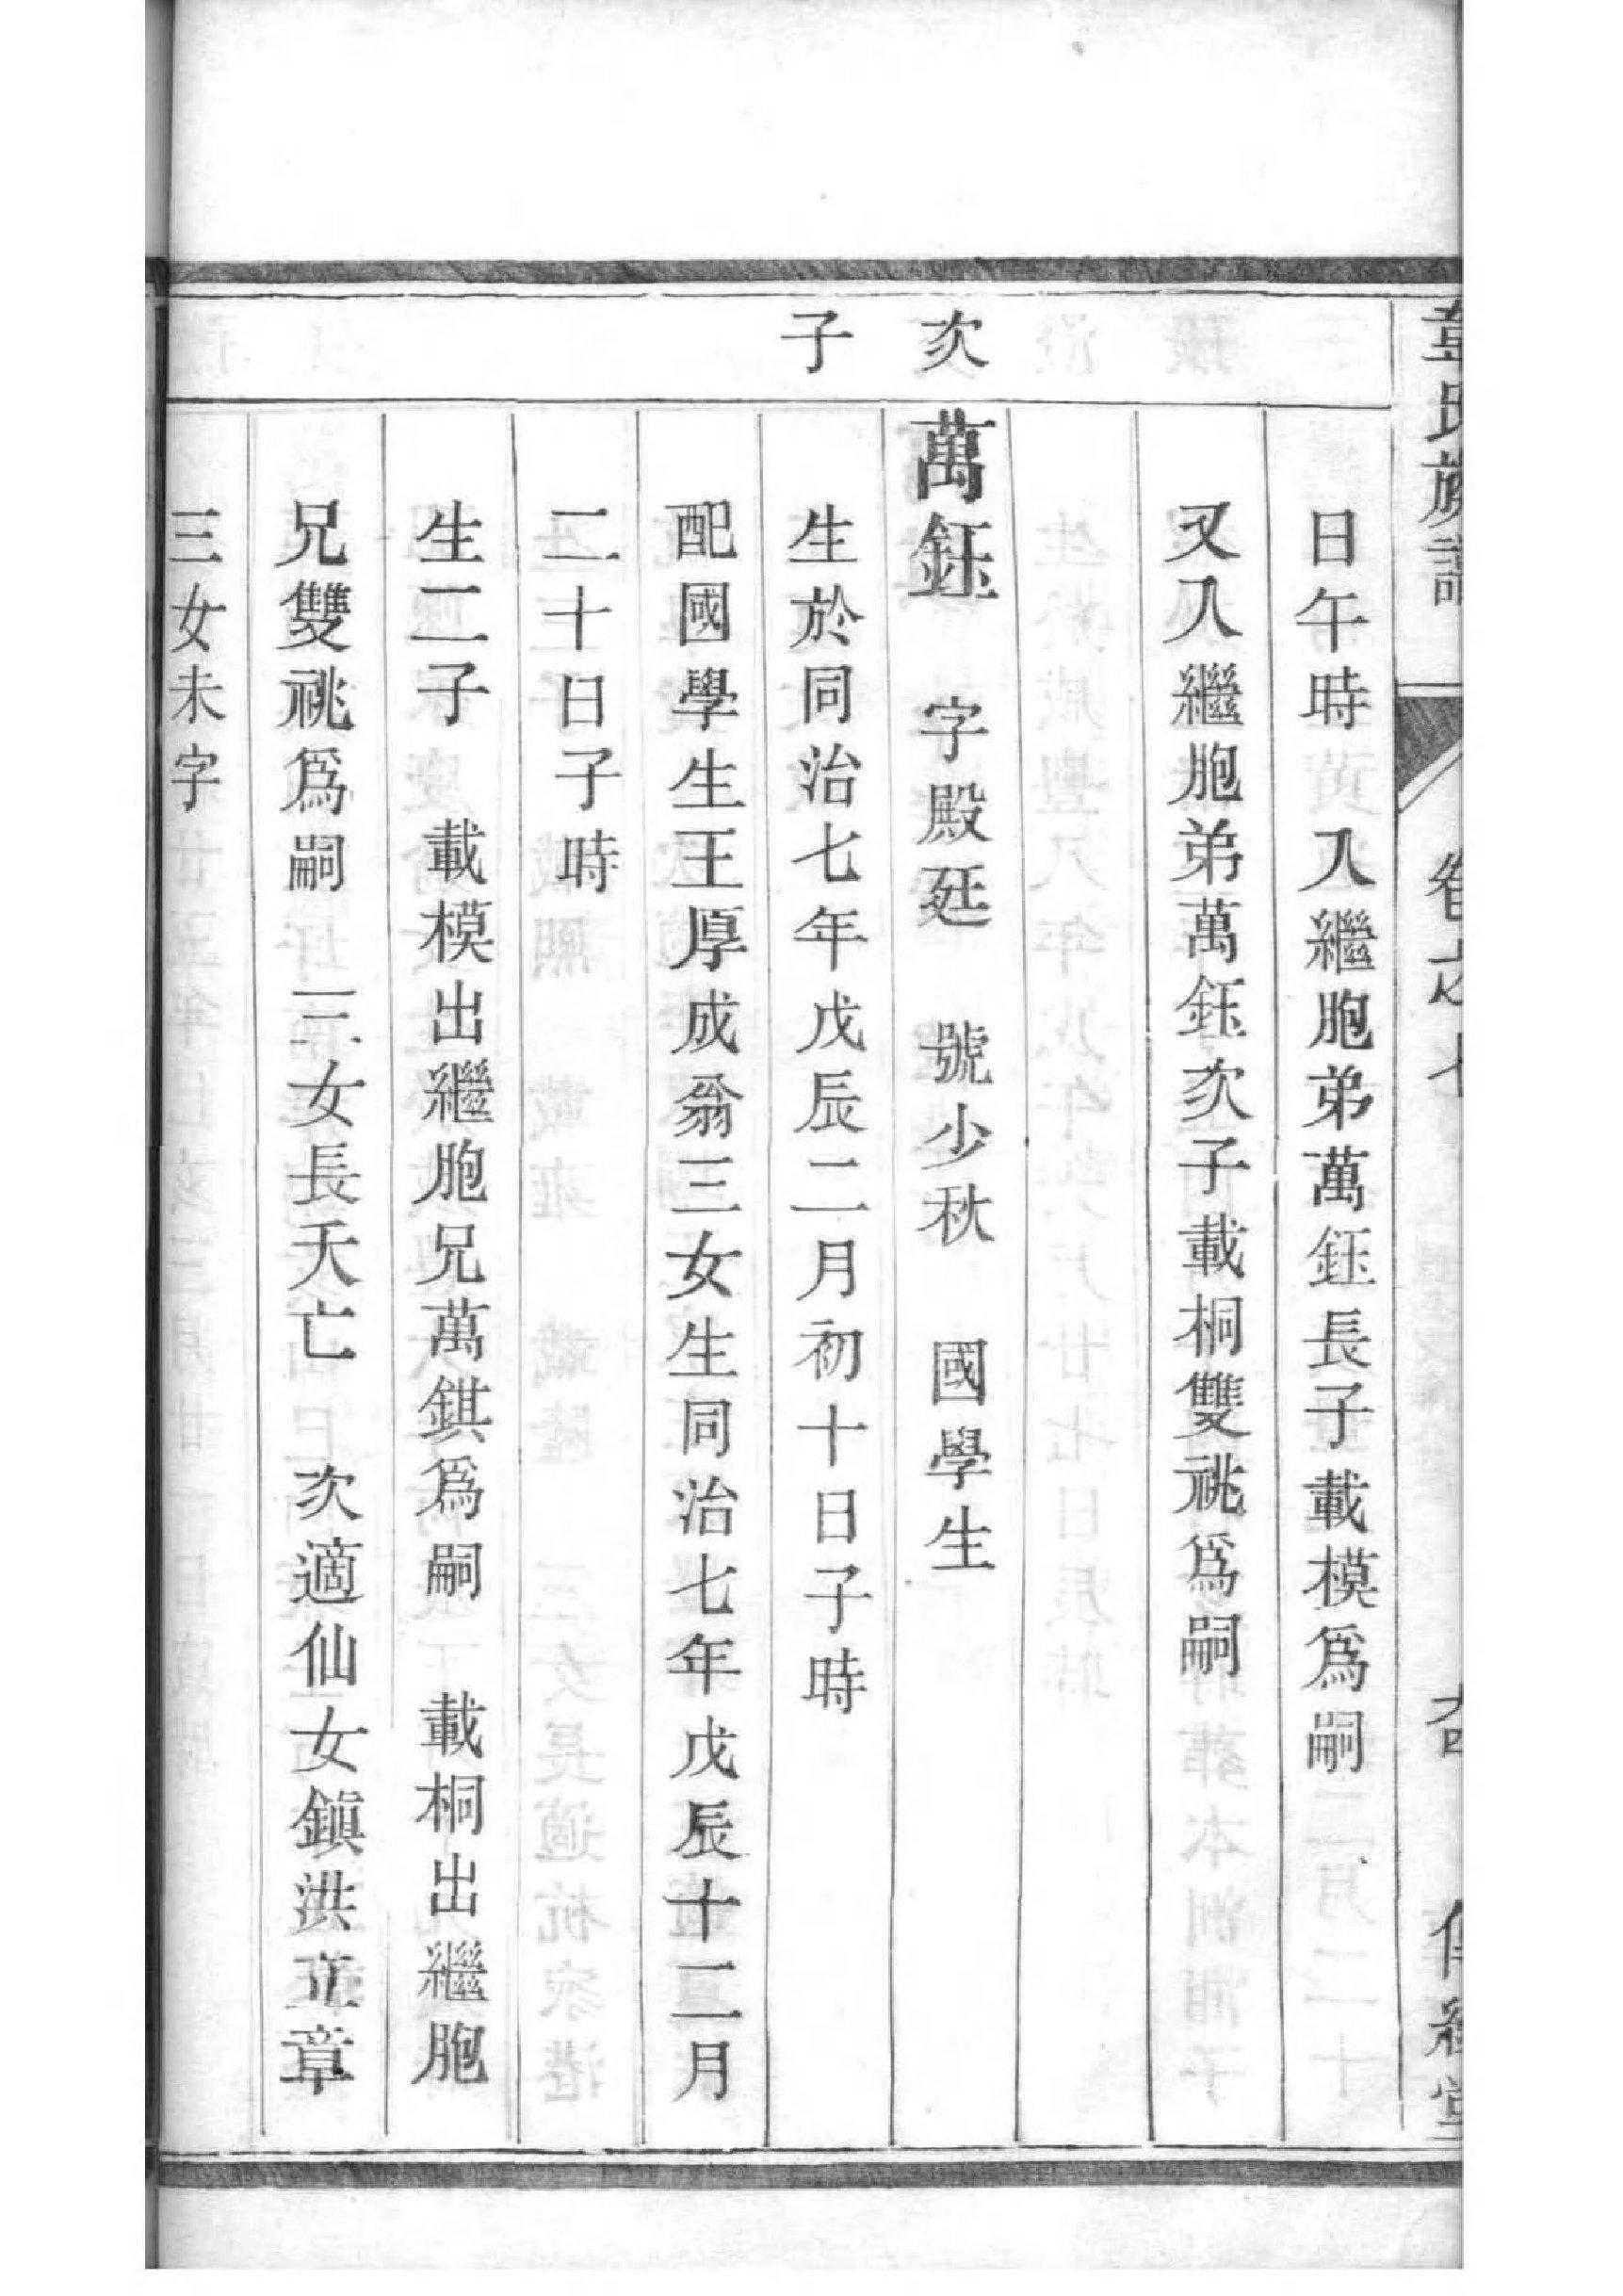 氏族譜
卷之七
日午時　入繼胞弟萬鈺長子載模為嗣
又入繼胞弟萬鈺次子載桐雙祧為嗣
次子
萬鈺　字殿廷　號少秋　國學生
生於同治七年戊辰二月初十日子時
配國學生王厚成翁三女生同治七年戊辰十二月
二十日子時
生二子　載模出繼胞兄萬錤為嗣　載桐出繼胞
兄雙祧為嗣　三女長夭亡　次適仙女鎮洪立章
三女未字